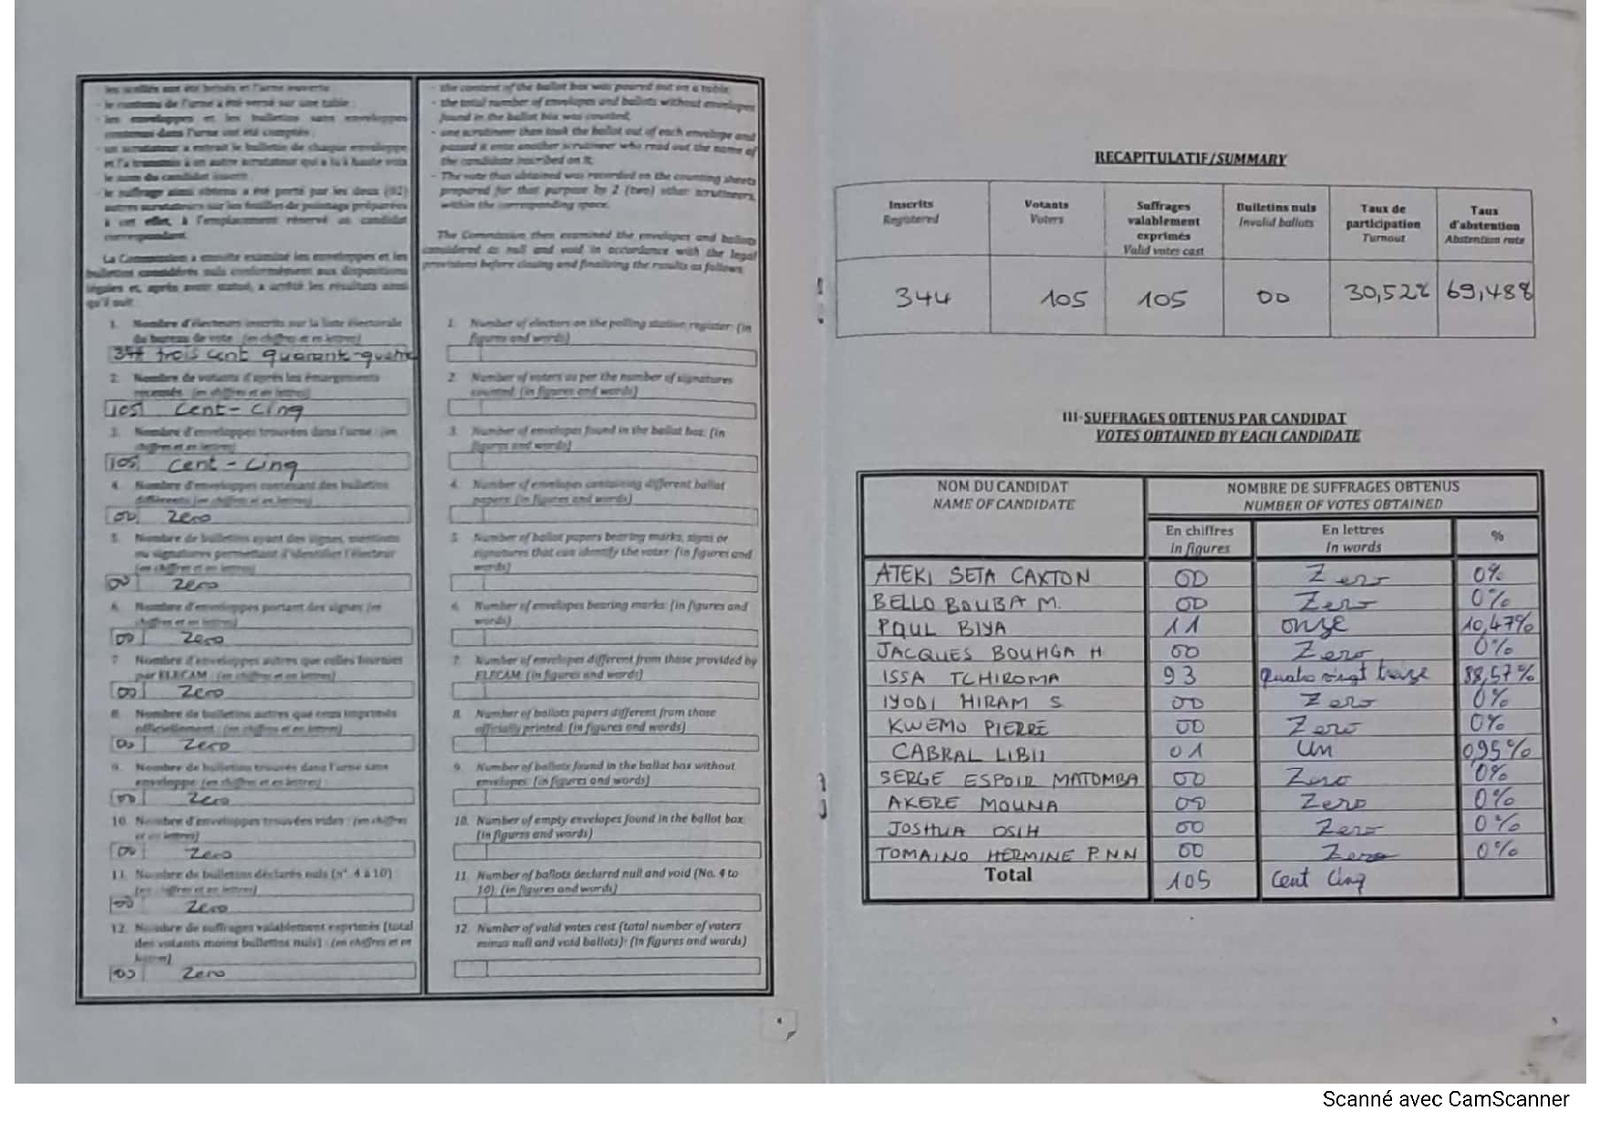 les scellés ont été brisés et l'urne ouverte
- le contenu de l'urne a été versé sur une table ;
- les enveloppes et les bulletins sans enveloppes
contenus dans l'urne ont été comptés ;
- un scrutateur a extrait le bulletin de chaque enveloppe
et l'a transmis à un autre scrutateur qui a lu à haute voix
le nom du candidat inscrit ;
- le suffrage ainsi obtenu a été porté par les deux (02)
autres scrutateurs sur les feuilles de pointage préparées
à cet effet, à l'emplacement réservé au candidat
correspondant.
La Commission a ensuite examiné les enveloppes et les
bulletins considérés nuls conformément aux dispositions
légales et, après avoir statué, a arrêté les résultats ainsi
qu'il suit
1. Nombre d'électeurs inscrits sur la liste électorale
du bureau de vote (en chiffres et en lettres)
344 trois cent quarant-quatre
2. Nombre de votants d'après les émargements
(en chiffres et en lettres)
105 Cent-Cinq
3. Nombre d'enveloppes trouvées dans l'urne : (en
chiffres et en lettres)
105 Cent-Cinq
4. Nombre d'enveloppes contenant des bulletins
différents (en chiffres et en lettres)
00 Zero
5. Nombre de bulletins ayant des signes, mentions
ou signatures permettant d'identifier l'électeur
(en chiffres et en lettres)
00 Zero
6. Nombre d'enveloppes portant des signes (en
chiffres et en lettres)
00 Zero
7. Nombre d'enveloppes autres que celles fournies
par ELECAM : (en chiffres et en lettres)
00 Zero
8. Nombre de bulletins autres que ceux imprimés
officiellement : (en chiffres et en lettres)
00 Zero
9. Nombre de bulletins trouvés dans l'urne sans
enveloppe (en chiffres et en lettres)
00 Zero
10. Nombre d'enveloppes trouvées vides : (en chiffres
et en lettres)
00 Zero
11. Nombre de bulletins déclarés nuls (n° 4 à 10)
(en chiffres et en lettres)
00 Zero
12. Nombre de suffrages valablement exprimés (total
des votants moins bulletins nuls) : (en chiffres et en
lettres)
00 Zero
- the content of the ballot box was poured out on a table;
- the total number of envelopes and ballots without envelopes
found in the ballot box was counted;
- one scrutineer then took the ballot out of each envelope and
passed it onto another scrutineer who read out the name of
the candidate inscribed on it;
- The vote thus obtained was recorded on the counting sheets
prepared for that purpose by 2 (two) other scrutineers,
within the corresponding space.
The Commission then examined the envelopes and ballots
considered as null and void in accordance with the legal
provisions before closing and finalizing the results as follows
1. Number of electors on the polling station register: (in
figures and words)
2. Number of voters as per the number of signatures
counted: (in figures and words)
3. Number of envelopes found in the ballot box: (in
figures and words)
4. Number of envelopes containing different ballot
papers: (in figures and words)
5. Number of ballot papers bearing marks, signs or
signatures that can identify the voter: (in figures and
words)
6. Number of envelopes bearing marks: (in figures and
words)
7. Number of envelopes different from those provided by
ELECAM: (in figures and words)
8. Number of ballots papers different from those
officially printed: (in figures and words)
9. Number of ballots found in the ballot box without
envelopes: (in figures and words)
10. Number of empty envelopes found in the ballot box:
(in figures and words)
11. Number of ballots declared null and void (No. 4 to
10): (in figures and words)
12. Number of valid votes cast (total number of voters
minus null and void ballots): (in figures and words)
RECAPITULATIF/SUMMARY
Inscrits Registered
Votants Voters
Suffrages valablement exprimés Valid votes cast
Bulletins nuls Invalid ballots
Taux de participation Turnout
Taux d'abstention Abstention rate
344 105 105 00 30,52% 69,48%
III-SUFFRAGES OBTENUS PAR CANDIDAT
VOTES OBTAINED BY EACH CANDIDATE
NOM DU CANDIDAT NOMBRE DE SUFFRAGES OBTENUS
NAME OF CANDIDATE NUMBER OF VOTES OBTAINED
En chiffres En lettres %
in figures In words
ATEKI SETA CAXTON 00 Zero 0%
BELLO BOUBA M. 00 Zero 0%
PAUL BIYA 11 onze 10,47%
JACQUES BOUHGA H 00 Zero 0%
ISSA TCHIROMA 93 quatre vingt treize 88,57%
IYODI HIRAM S 00 Zero 0%
KWEMO PIERRE 00 Zero 0%
CABRAL LIBII 01 Un 0,95%
SERGE ESPOIR MATOMBA 00 Zero 0%
AKERE MOUNA 00 Zero 0%
JOSHUA OSIH 00 Zero 0%
TOMAINO HERMINE P. NN 00 Zero 0%
Total 105 Cent Cinq
Scanné avec CamScanner